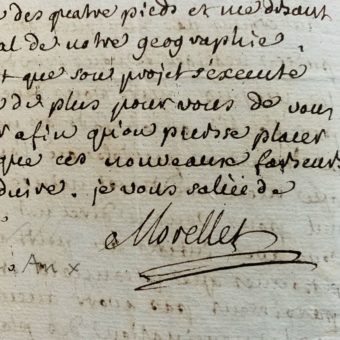 des quatre pieds et me disant
al de notre geographie.
t que son projet s'execute
de plus pour vous de vous
r afin qu'on puisse placer
que ces nouveaux faiseurs
duire. je vous salue de
Morellet
An x